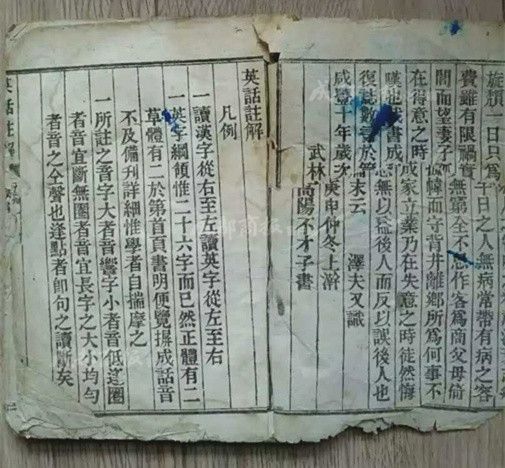 旋頹一日只為日之人無病常帶有病之容
費雖有限禍實無窮全不思作客為商父母倚
閭而望妻子幃而守背井離鄉所為何事不
在得意之時成家立業乃在失意之時徒然悔
嘆也茲書成恐無以益後人而反以誤後人也
復誌數言於篇末云 澤夫又識
咸豐十年歲次庚申仲冬上澣
武林高陽不才子書
英話註解
凡例
一讀漢字從右至左讀英字從左至右
一英字綱領惟二十六字而已然正體有二
草體有二於第首頁書明便覽攞成話音
不及備刊詳細惟學者自揣摩之
一所註之音字大者音響字小者音低逐圈
者音宜斷無圈者音宜長字之大小均勻
者音之全聲也逢點者即句之讀斷矣
英話註解